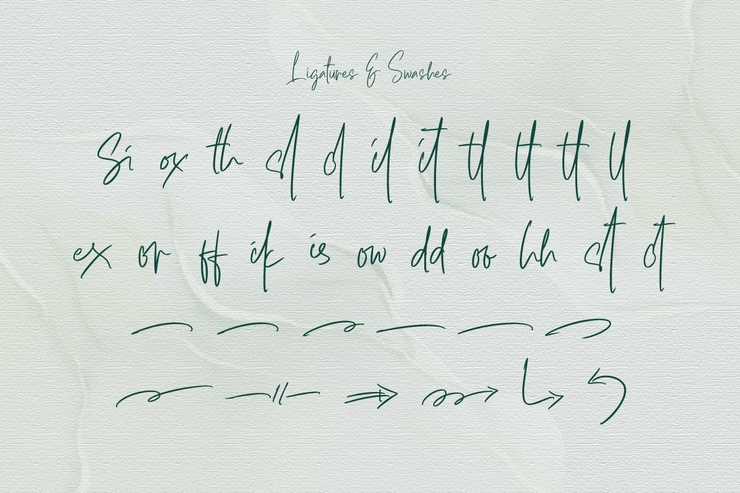 Ligatures & Swashes
Si ox th of il it tl tt tt ll
ex or ff if is ow dd oo hh ot